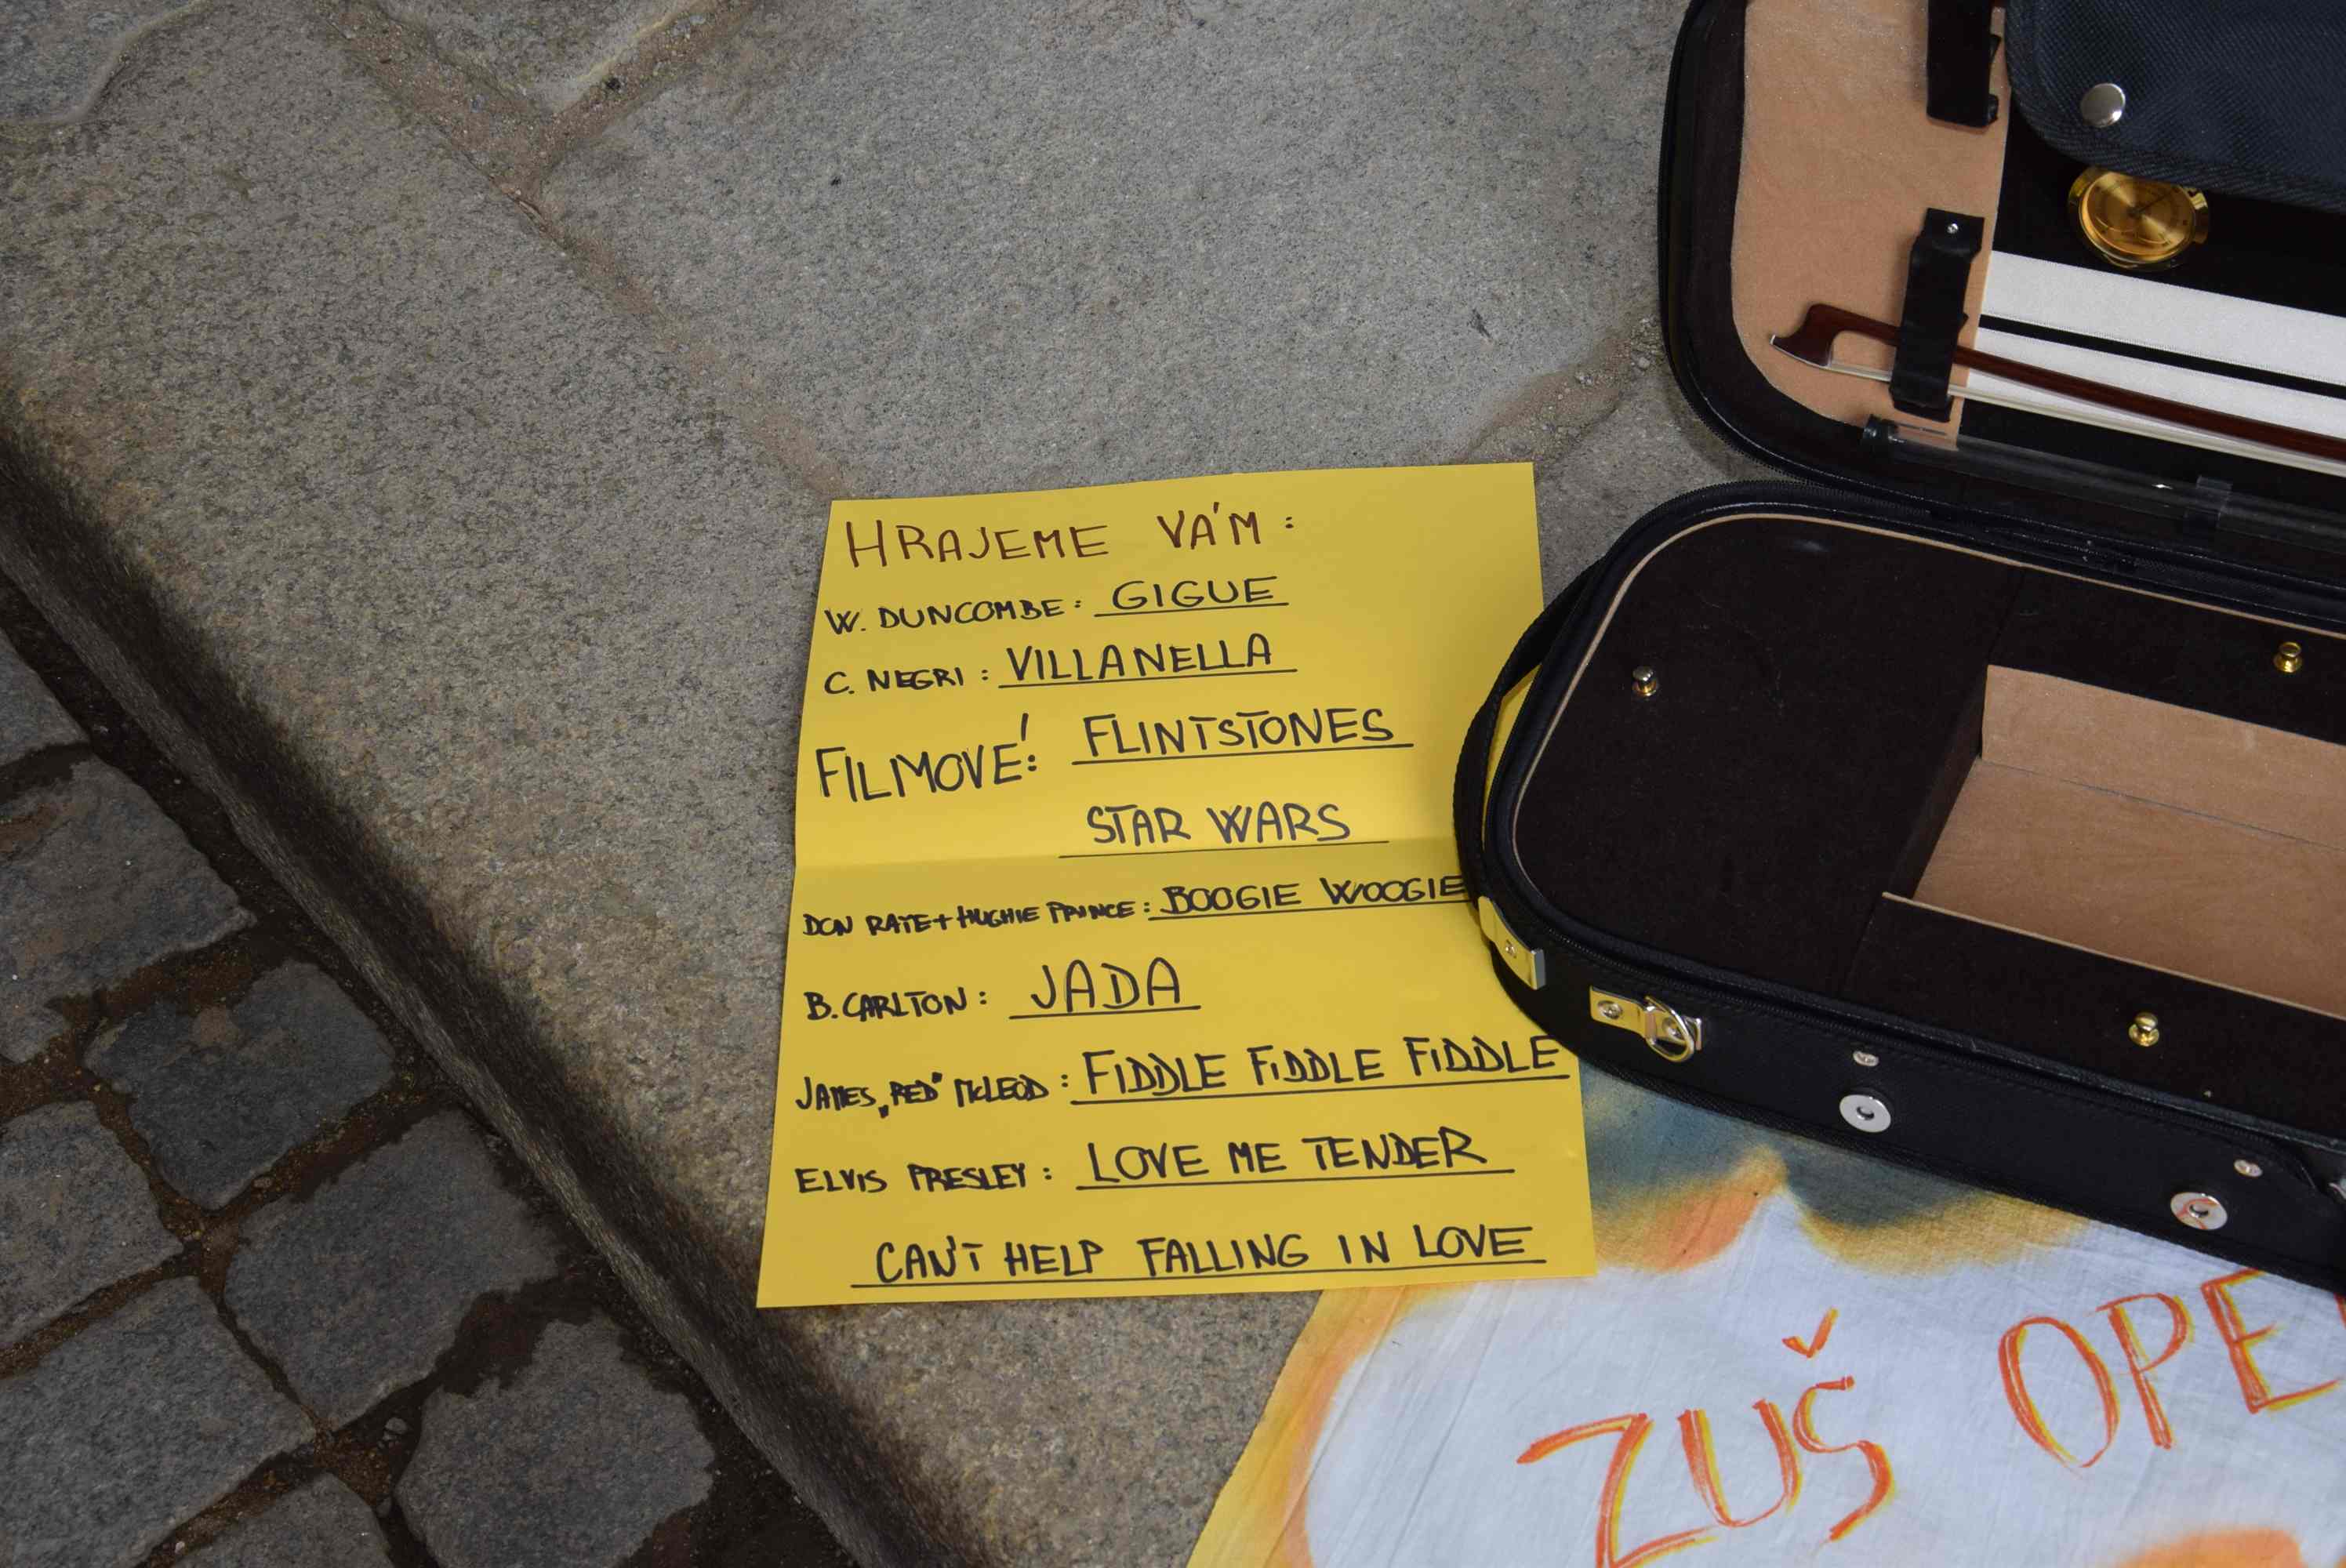 HRAJEME VÁM:
W. DUNCOMBE: GIGUE
C. NEGRI: VILLANELLA
FILMOVÉ: FLINTSTONES
STAR WARS
DON RAYE + HUGHIE PRINCE: BOOGIE WOOGIE
B. CARLTON: JADA
JAMES „RED" McLEOD: FIDDLE FIDDLE FIDDLE
ELVIS PRESLEY: LOVE ME TENDER
CAN'T HELP FALLING IN LOVE
ZUŠ OPE